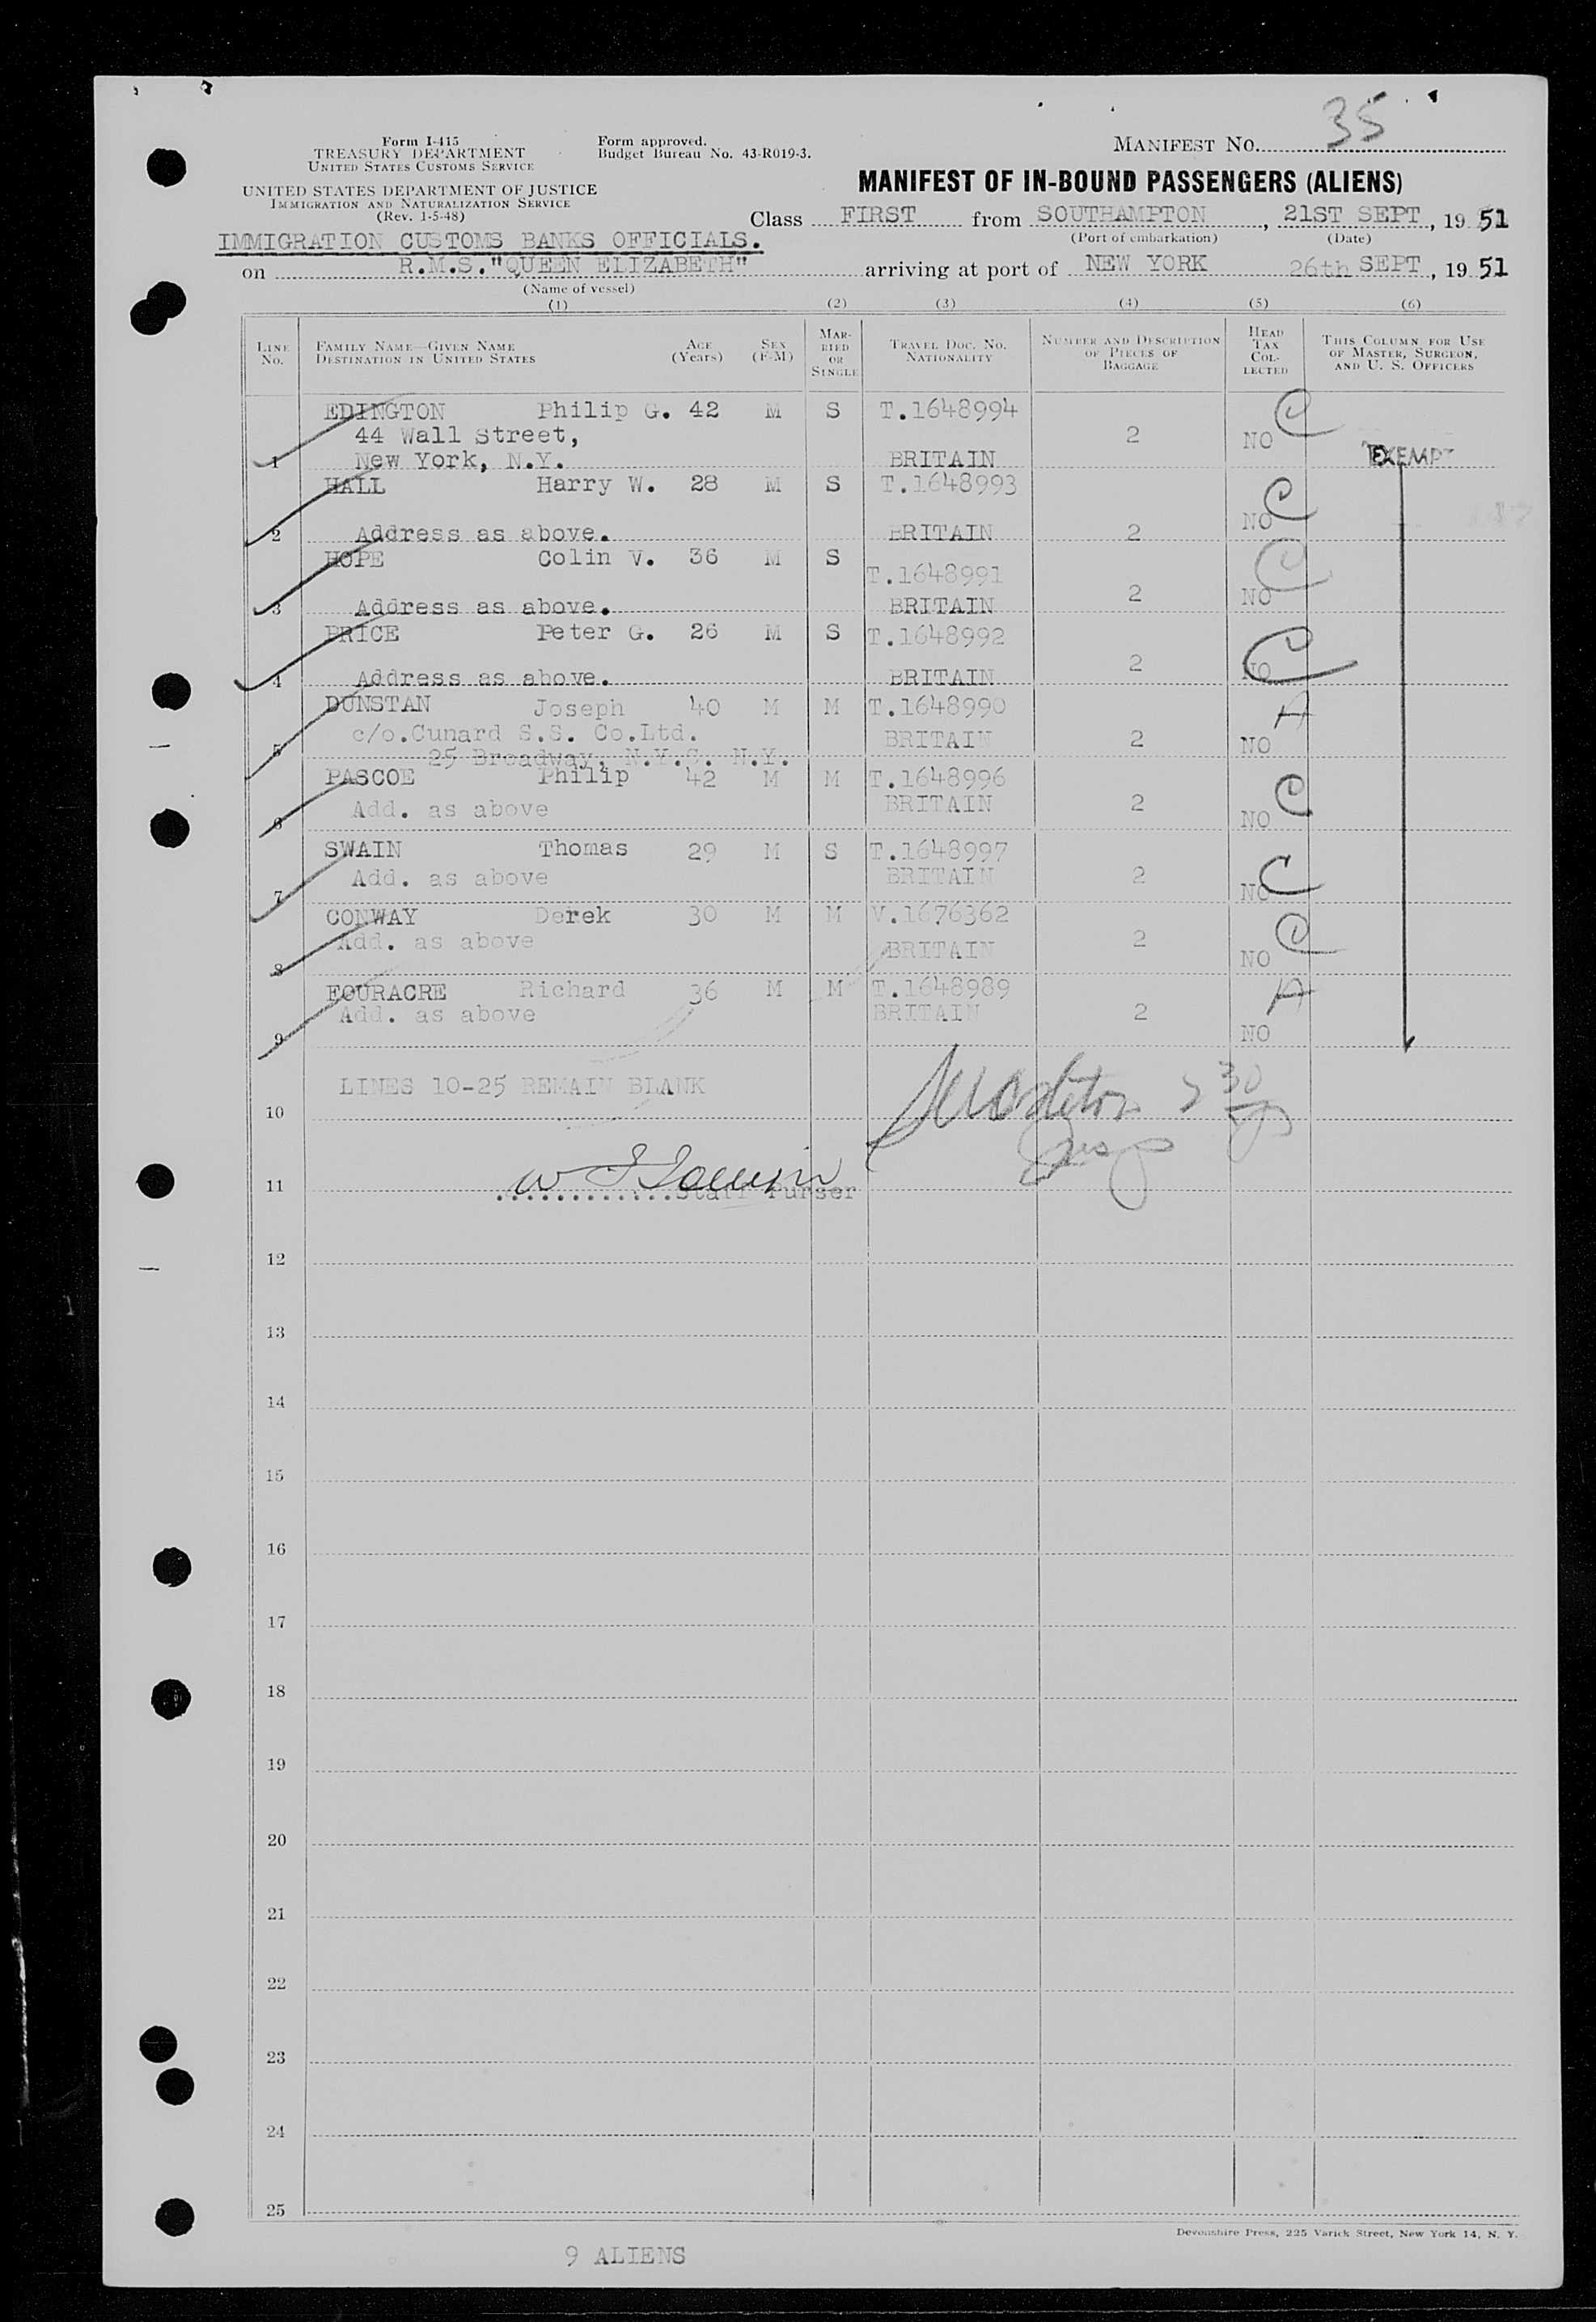 35
Form I-415
TREASURY DEPARTMENT
UNITED STATES CUSTOMS SERVICE
Form approved.
Budget Bureau No. 43-R019-3.
MANIFEST NO.
UNITED STATES DEPARTMENT OF JUSTICE
IMMIGRATION AND NATURALIZATION SERVICE
(Rev. 1-5-48)
MANIFEST OF IN-BOUND PASSENGERS (ALIENS)
Class FIRST from SOUTHAMPTON, 21ST SEPT, 1951
(Port of embarkation) (Date)
IMMIGRATION CUSTOMS BANKS OFFICIALS.
on R.M.S."QUEEN ELIZABETH" arriving at port of NEW YORK 26th SEPT, 1951
(Name of vessel)
(1) (2) (3) (4) (5) (6)
LINE NO. FAMILY NAME—GIVEN NAME DESTINATION IN UNITED STATES AGE (Years) SEX (F-M) MARRIED OR SINGLE TRAVEL DOC. NO. NATIONALITY NUMBER AND DESCRIPTION OF PIECES OF BAGGAGE HEAD TAX COLLECTED THIS COLUMN FOR USE OF MASTER, SURGEON, AND U. S. OFFICERS
EDINGTON Philip G. 42 M S T.1648994 C
44 Wall Street, 2 NO
1 New York, N.Y. BRITAIN EXEMPT
HALL Harry W. 28 M S T.1648993 C
NO
2 Address as above. BRITAIN 2
HOPE Colin V. 36 M S T.1648991 C
3 Address as above. BRITAIN 2 NO
PRICE Peter G. 26 M S T.1648992 C
4 Address as above. BRITAIN 2 NO
DUNSTAN Joseph 40 M M T.1648990 A
c/o.Cunard S.S. Co.Ltd. BRITAIN 2 NO
5 25 Broadway, N.Y.C. N.Y.
PASCOE Philip 42 M M T.1648996 C
Add. as above BRITAIN 2 NO
6
SWAIN Thomas 29 M S T.1648997 C
Add. as above BRITAIN 2 NO
7
CONWAY Derek 30 M M V.1676362 C
Add. as above BRITAIN 2 NO
8
FOURACRE Richard 36 M M T.1648989 A
Add. as above BRITAIN 2 NO
9
LINES 10-25 REMAIN BLANK
10
11 Staff Purser
12
13
14
15
16
17
18
19
20
21
22
23
24
25
Devonshire Press, 225 Varick Street, New York 14, N. Y.
9 ALIENS